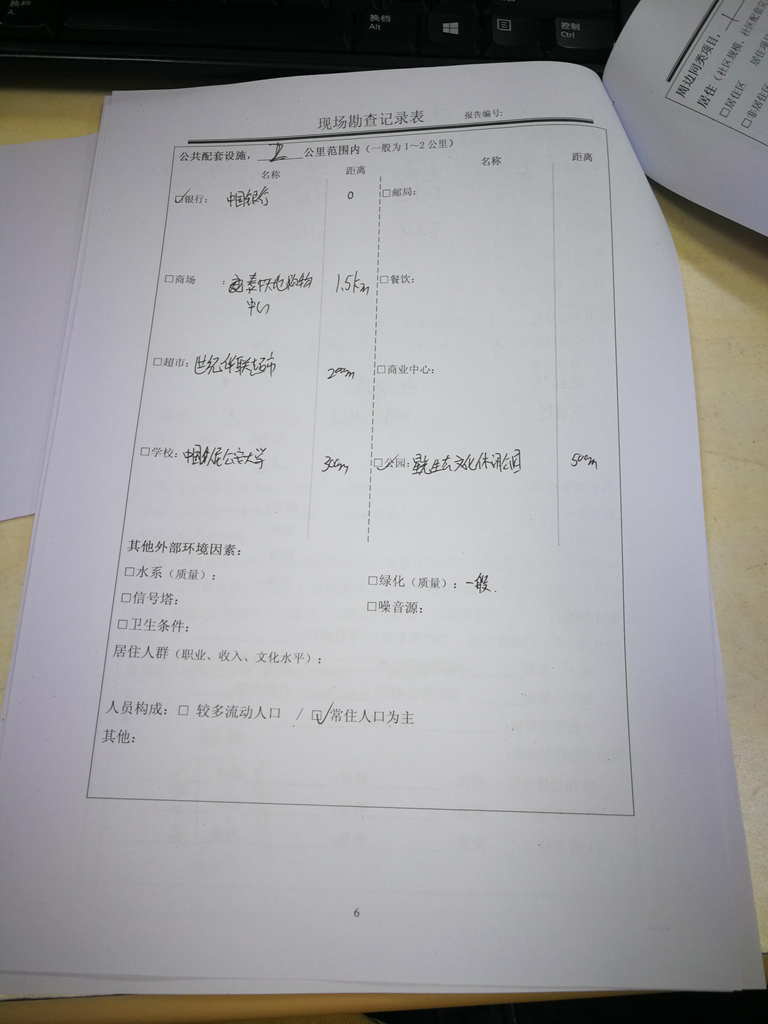 换档
Alt
控制
Ctrl
周边同类项目,
居住(社区规模、社区配套完
□居住区 居住项目
□非居住区
现场勘查记录表 报告编号:
公共配套设施, 公里范围内(一般为1~2公里)
名称 距离 名称 距离
☑银行: 中国银行 0 □邮局:
□商场 : 购物 1.5km □餐饮:
中心
□超市: 世纪华联超市 200m □商业中心:
□学校: 中国人民公安大学 300m ☑公园: 生态文化休闲公园 500m
其他外部环境因素:
□水系(质量): □绿化(质量):一般.
□信号塔: □噪音源:
□卫生条件:
居住人群(职业、收入、文化水平):
人员构成:□ 较多流动人口 / ☑常住人口为主
其他:
6